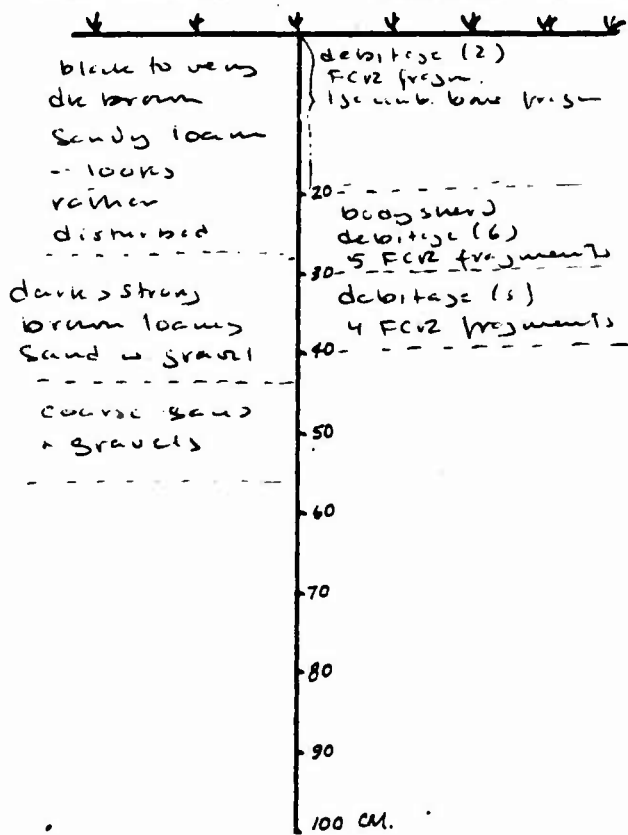 black to very
dk brown
sandy loam
-- looks
rather
disturbed
dark > strong
brown loamy
sand w gravel
coarse sand
+ gravels
debitage (2)
FCR fragm.
1 lge mamb. bone fragm
20
bodysherd
debitage (6)
5 FCR fragments
30
debitage (5)
4 FCR fragments
40
50
60
70
80
90
100 CM.